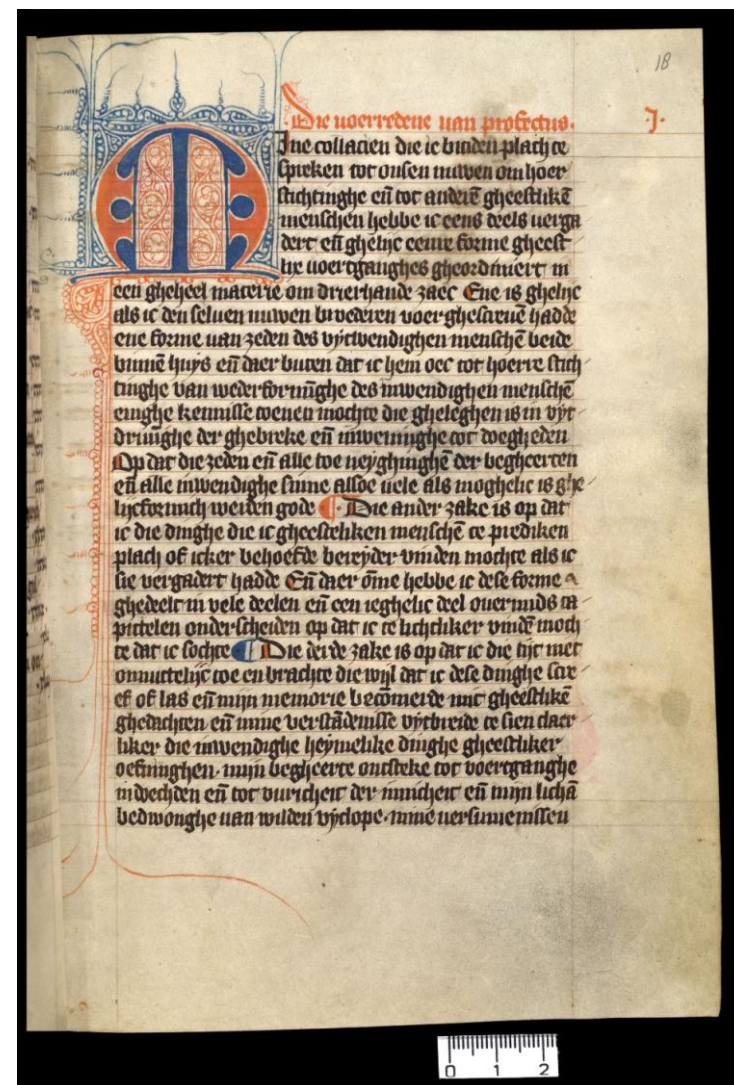 18
Die voerredene van profectus. .J.
MIne collacien die ic biuden plach te
spreken tot onsen nuwen om hoer
stichtinghe eñ tot anderē gheestlikē
menschen hebbe ic eens deels uerga
dert eñ ghelijc eenre forme gheest
lix uoertganghes gheordiniert in
een gheheel materie om drierhande zaec Ene is ghelijc
als ic den seluen nuwen broederen voer ghescreuē hadde
ene forme uan zeden des vytwendighen menschē beide
binnē huys eñ daer buten dat ic hem oec tot hoerre stich
tinghe van wederformīghe des inwendighen menschē
eīnghe kennisse toenen mochte die gheleghen is in vyt
driuīghe der ghebreke eñ inwenninghe tot doegheden
Op dat die zeden eñ alle toe neyghinghē der begheerten
eñ alle inwendighe sinne alsoe uele als moghelic is ghe
lijcformich werden gode ¶ Die ander zake is op dat
ic die dinghe die ic gheesteliken menschē te prediken
plach of icker behoefde bereyder vinden mochte als ic
sie vergadert hadde Eñ daer ōme hebbe ic dese forme
ghedeelt in vele deelen eñ een ieghelic deel ouermids ca
pittelen onderscheiden op dat ic te lichtliker vindē moch
te dat ic sochte ¶ Die derde zake is op dat ic die tijt niet
onnuttelijc toe en brachte die wijl dat ic dese dinghe scre
ef of las eñ mijn memorie becōmerde mit gheestlikē
ghedachten eñ mine verstādenisse vytbreide te sien claer
liker die inwendighe heymelike dinghe gheestliker
oefninghen. mijn begheerte ontsteke tot voertganghe
in doechden eñ tot vuricheit der minnicheit eñ mijn lichā
bedwonghe uan wilden vytlope. mine uersumenissen
0 1 2